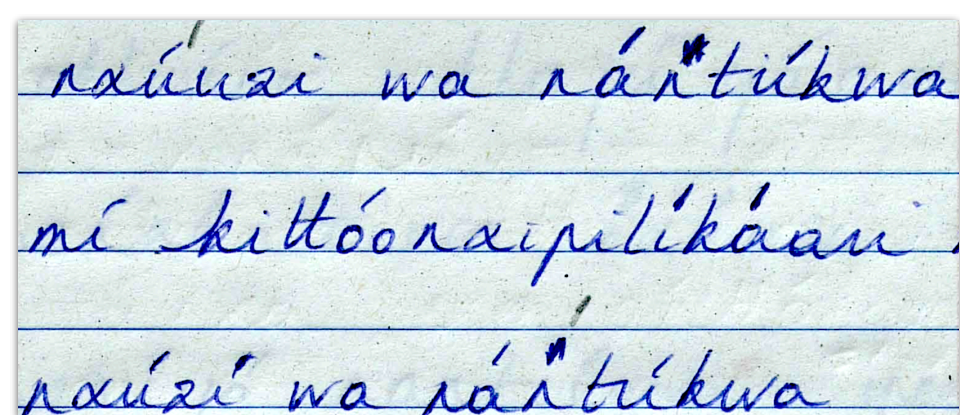 nxúuzi wa nán̋túkwa
mí kittóonxipilíkáani
nxúzí wa nán̋túkwa